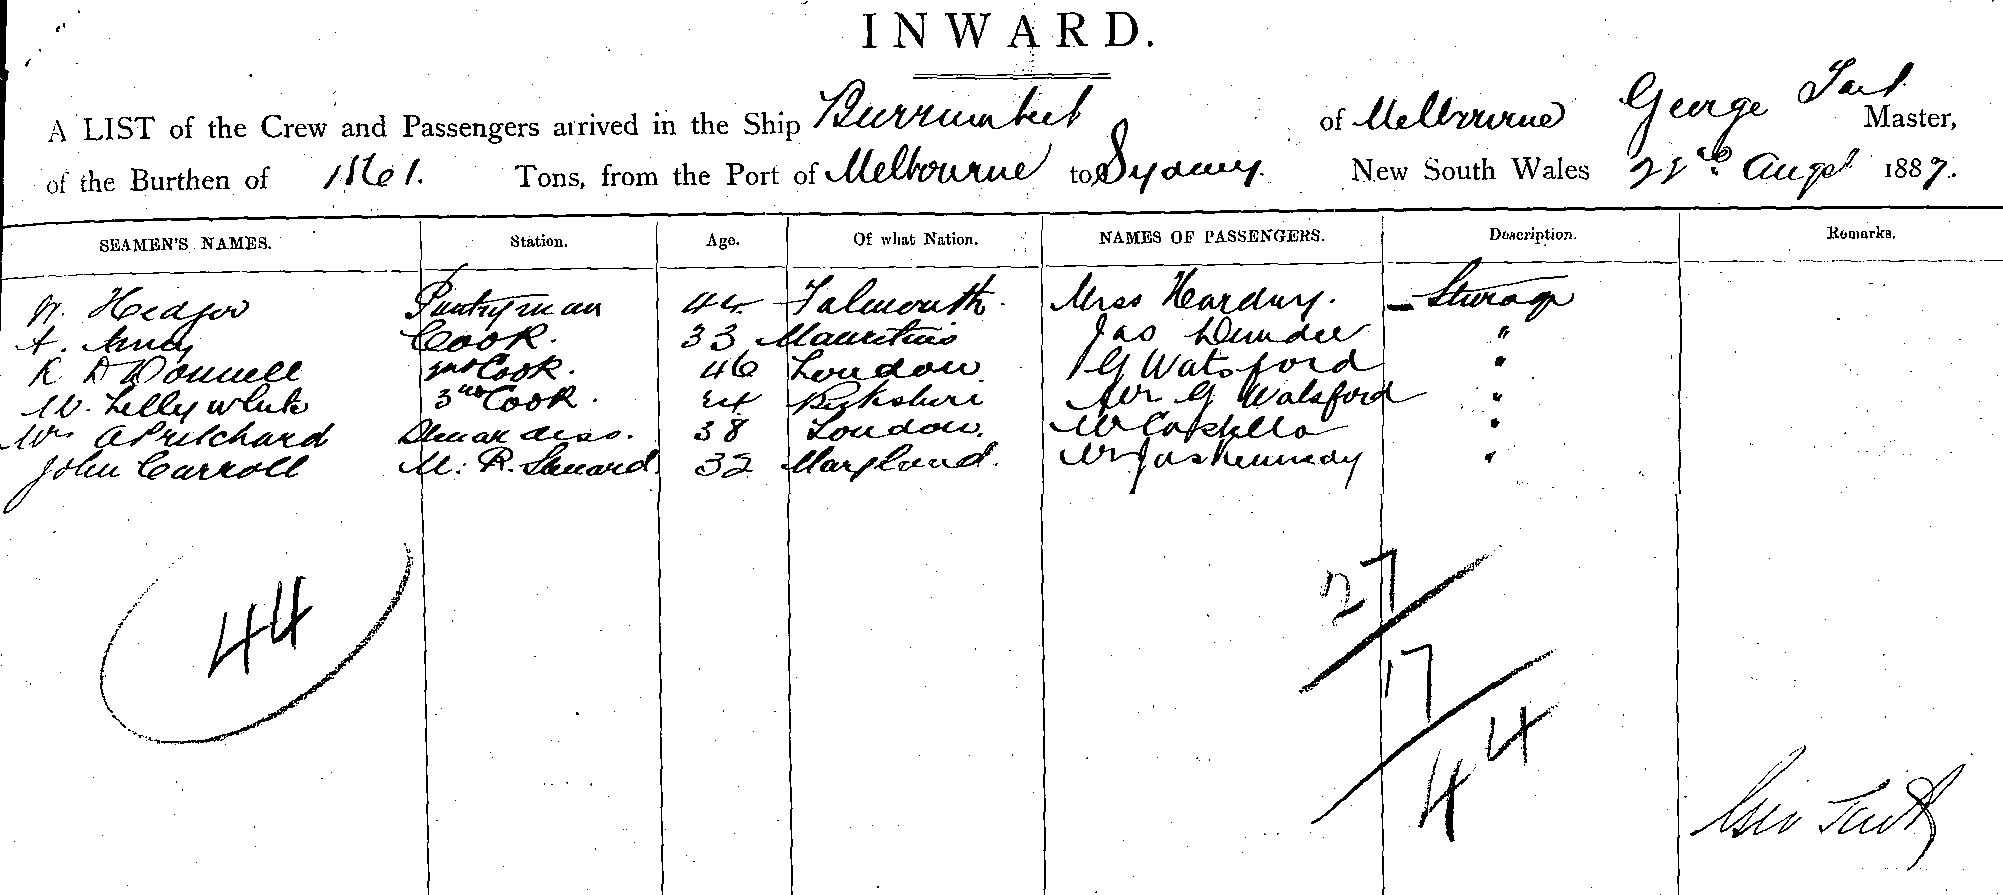 INWARD.
A LIST of the Crew and Passengers arrived in the Ship Burrumbeet of Melbourne George Tait Master,
of the Burthen of Tons, from the Port of Melbourne to Sydney. New South Wales 22nd Augst 1887.
SEAMEN'S NAMES. Station. Age. Of what Nation. NAMES OF PASSENGERS. Description. Remarks.
Pantryman 44 Falmouth. Miss Steerage
A. Cook. 33 Mauritius Jas Dundee "
R Cook. 46 London G Watsford "
W. Lillywhite 3rd Cook. 24 Berkshire Mr G Watsford "
A Pritchard 38 London. "
John Carroll 32 Maryland. Mr Jas Kennedy "
44
27
17
44
Geo Tait